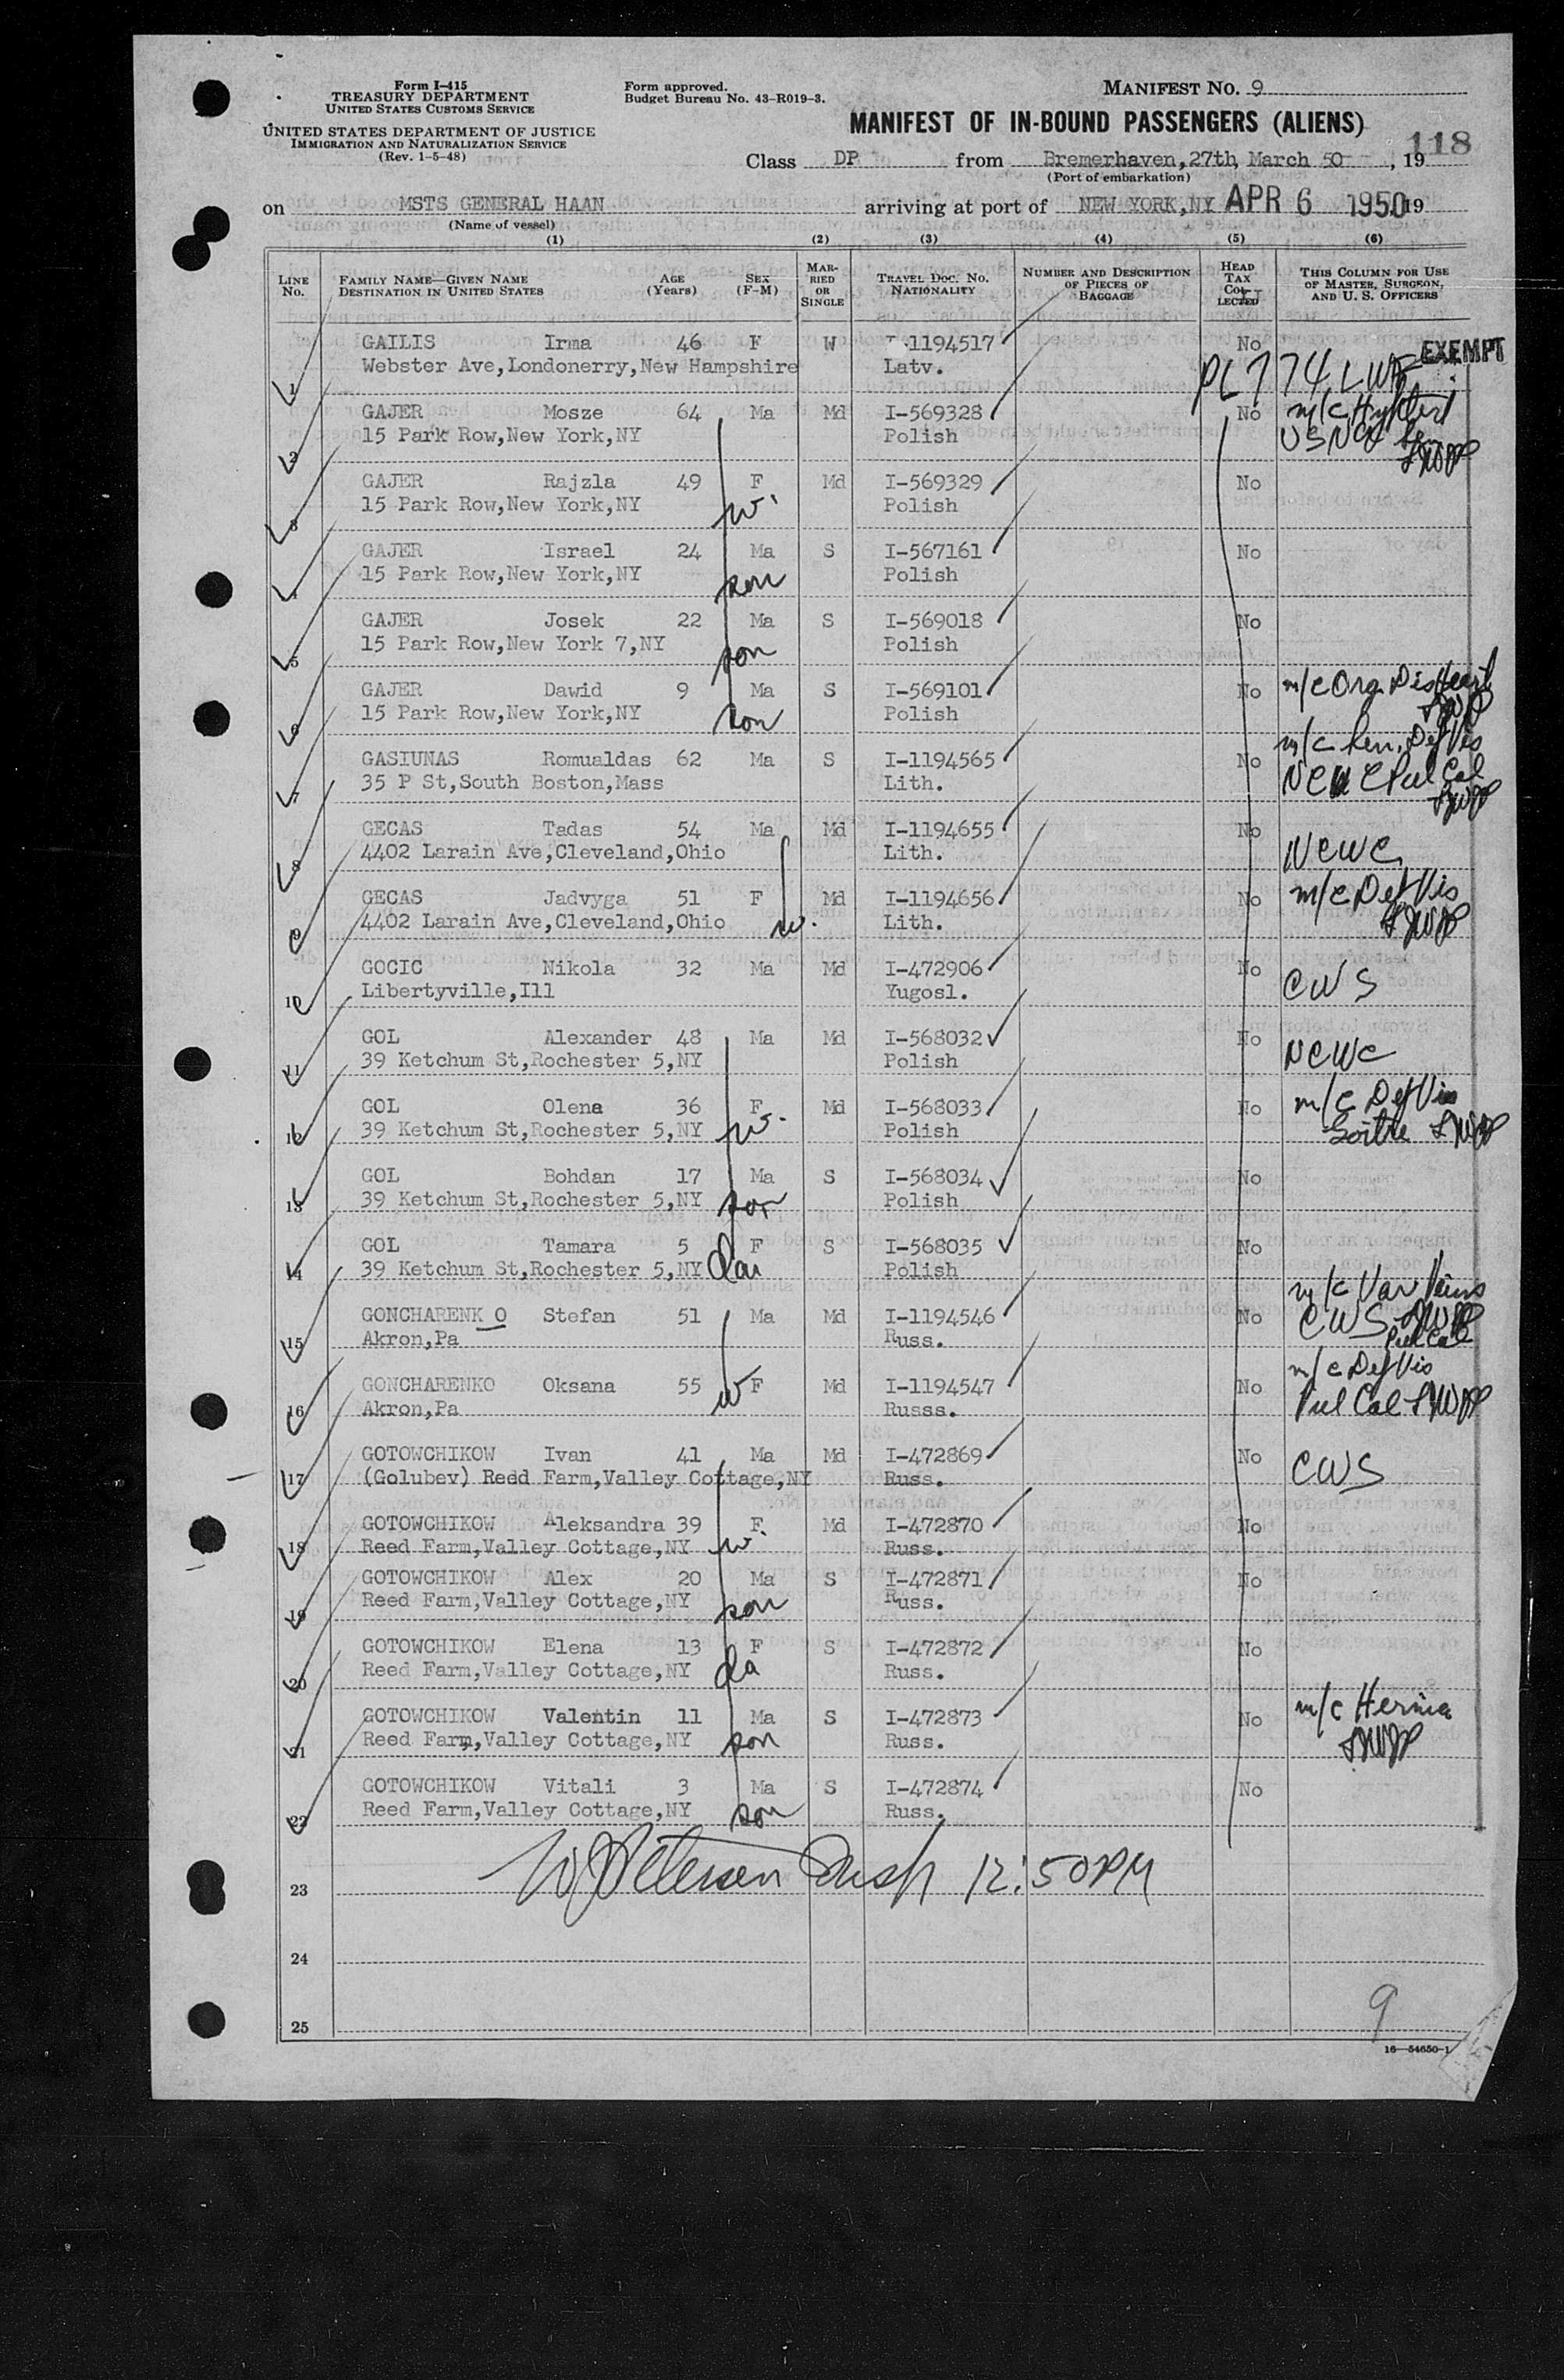 Form I-415
TREASURY DEPARTMENT
UNITED STATES CUSTOMS SERVICE
UNITED STATES DEPARTMENT OF JUSTICE
IMMIGRATION AND NATURALIZATION SERVICE
(Rev. 1-5-48)
Form approved.
Budget Bureau No. 43-R019-3.
MANIFEST NO. 9
MANIFEST OF IN-BOUND PASSENGERS (ALIENS)
118
Class DP from Bremerhaven, 27th, March 50, 19
(Port of embarkation)
on MSTS GENERAL HAAN arriving at port of NEW YORK, NY APR 6 1950 19
(Name of vessel)
(1) (2) (3) (4) (5) (6)
LINE No. FAMILY NAME—GIVEN NAME DESTINATION IN UNITED STATES AGE (Years) SEX (F-M) MARRIED OR SINGLE TRAVEL DOC. NO. NATIONALITY NUMBER AND DESCRIPTION OF PIECES OF BAGGAGE HEAD TAX COLLECTED THIS COLUMN FOR USE OF MASTER, SURGEON, AND U. S. OFFICERS
1 GAILIS Irma 46 F W I-1194517 No EXEMPT
Webster Ave, Londonerry, New Hampshire Latv. PL 774 LWF
2 GAJER Mosze 64 Ma Md I-569328 No m/c
15 Park Row, New York, NY Polish USNA
3 GAJER Rajzla 49 F Md I-569329 No
15 Park Row, New York, NY w. Polish
4 GAJER Israel 24 Ma S I-567161 No
15 Park Row, New York, NY son Polish
5 GAJER Josek 22 Ma S I-569018 No
15 Park Row, New York 7, NY son Polish
6 GAJER Dawid 9 Ma S I-569101 No m/c Org. Dis Heart
15 Park Row, New York, NY son Polish
7 GASIUNAS Romualdas 62 Ma S I-1194565 No m/c Def Vis
35 P St, South Boston, Mass Lith. NCWC Pul Cal
8 GECAS Tadas 54 Ma Md I-1194655 No
4402 Larain Ave, Cleveland, Ohio Lith. NCWC
9 GECAS Jadvyga 51 F Md I-1194656 No m/c Def Vis
4402 Larain Ave, Cleveland, Ohio w. Lith.
10 GOCIC Nikola 32 Ma Md I-472906 No
Libertyville, Ill Yugosl. CWS
11 GOL Alexander 48 Ma Md I-568032 No
39 Ketchum St, Rochester 5, NY Polish NCWC
12 GOL Olena 36 F Md I-568033 No m/c Def Vis
39 Ketchum St, Rochester 5, NY w. Polish Goitre
13 GOL Bohdan 17 Ma S I-568034 No
39 Ketchum St, Rochester 5, NY son Polish
14 GOL Tamara 5 F S I-568035 No
39 Ketchum St, Rochester 5, NY dau Polish
15 GONCHARENK O Stefan 51 Ma Md I-1194546 No m/c Var Veins
Akron, Pa Russ. CWS Pul Cal
16 GONCHARENKO Oksana 55 F Md I-1194547 No m/c Def Vis
Akron, Pa w Russs. Pul Cal
17 GOTOWCHIKOW Ivan 41 Ma Md I-472869 No
(Golubev) Reed Farm, Valley Cottage, NY Russ. CWS
18 GOTOWCHIKOW Aleksandra 39 F Md I-472870 No
Reed Farm, Valley Cottage, NY w. Russ.
19 GOTOWCHIKOW Alex 20 Ma S I-472871 No
Reed Farm, Valley Cottage, NY son Russ.
20 GOTOWCHIKOW Elena 13 F S I-472872 No
Reed Farm, Valley Cottage, NY da Russ.
21 GOTOWCHIKOW Valentin 11 Ma S I-472873 No m/c Hernia
Reed Farm, Valley Cottage, NY son Russ.
22 GOTOWCHIKOW Vitali 3 Ma S I-472874 No
Reed Farm, Valley Cottage, NY son Russ.
23 12:50 PM
24
25
9
16—54650-1